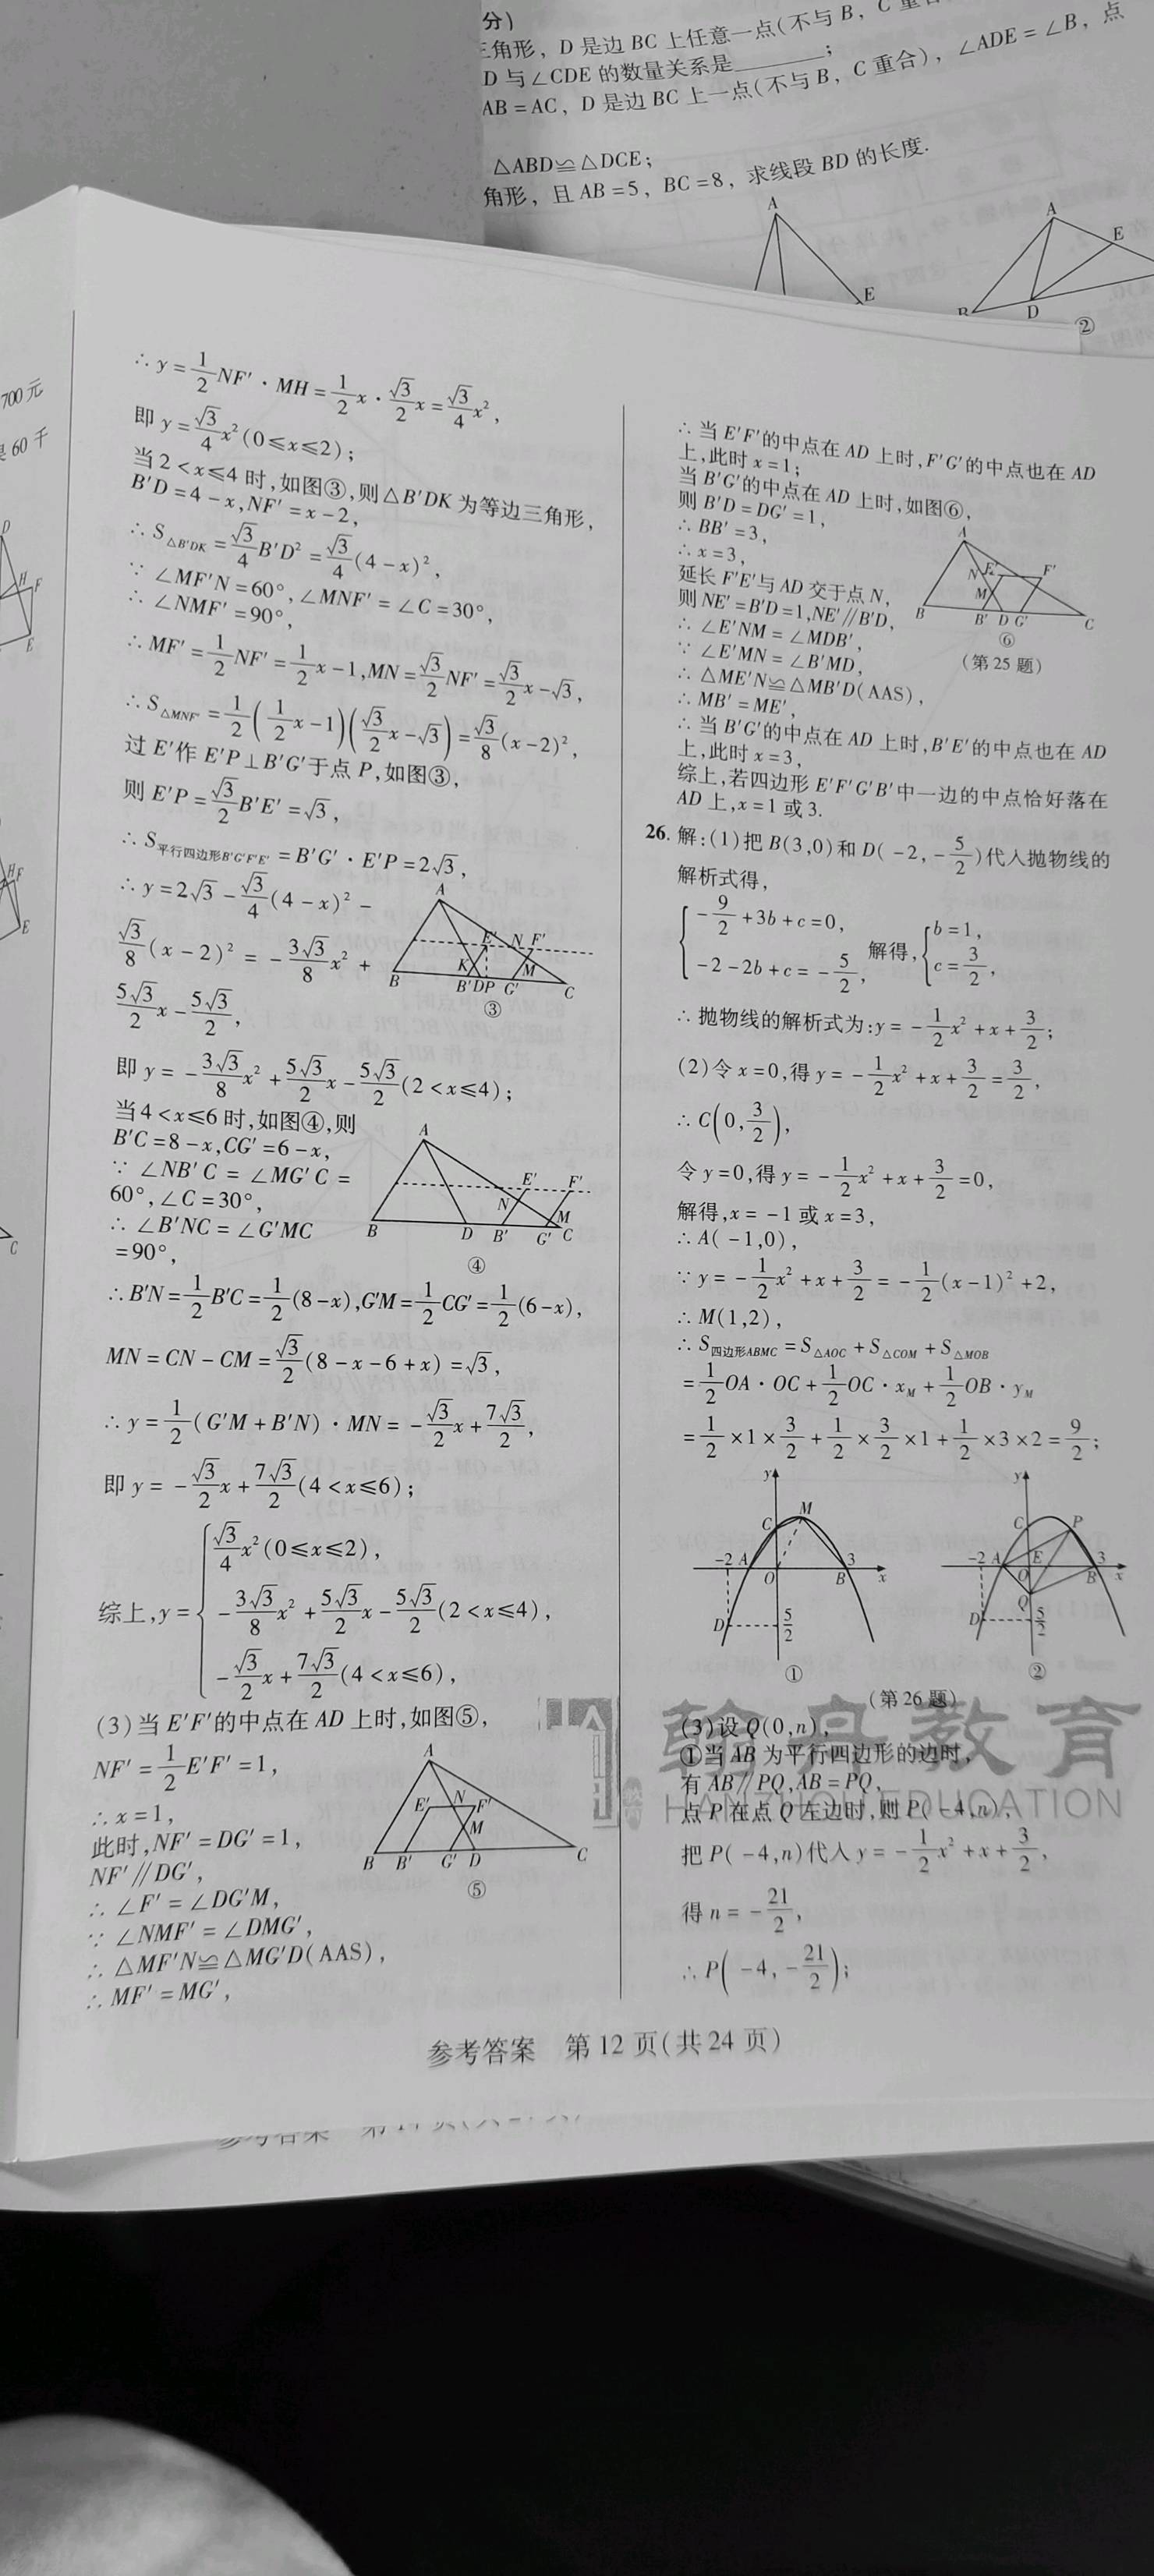 分)
三角形，D 是边 BC 上任意一点(不与 B，C 重合
D 与∠CDE 的数量关系是________；
AB=AC，D 是边 BC 上一点(不与 B，C 重合)，∠ADE=∠B，点
△ABD≌△DCE；
角形，且 AB=5，BC=8，求线段 BD 的长度.
A
E
A
E
B
D
②
700 元
60 千
D
H
F
E
HF
E
C
∴ y=1/2 NF′·MH=1/2 x·√3/2 x=√3/4 x²，
即 y=√3/4 x²(0≤x≤2)；
当 2<x≤4 时，如图③，则△B′DK 为等边三角形，
B′D=4-x，NF′=x-2，
∴ S△B′DK=√3/4 B′D²=√3/4(4-x)²，
∵ ∠MF′N=60°，∠MNF′=∠C=30°，
∴ ∠NMF′=90°，
∴ MF′=1/2 NF′=1/2 x-1，MN=√3/2 NF′=√3/2 x-√3，
∴ S△MNF′=1/2(1/2 x-1)(√3/2 x-√3)=√3/8(x-2)²，
过 E′作 E′P⊥B′G′于点 P，如图③，
则 E′P=√3/2 B′E′=√3，
∴ S平行四边形B′G′F′E′=B′G′·E′P=2√3，
∴ y=2√3-√3/4(4-x)²-
√3/8(x-2)²=-3√3/8 x²+
5√3/2 x-5√3/2，
A
E′ N F′
K M
B B′DP G′ C
③
即 y=-3√3/8 x²+5√3/2 x-5√3/2(2<x≤4)；
当 4<x≤6 时，如图④，则
B′C=8-x，CG′=6-x，
∵ ∠NB′C=∠MG′C=
60°，∠C=30°，
∴ ∠B′NC=∠G′MC
=90°，
A
E′ F′
N
M
B D B′ G′ C
④
∴ B′N=1/2 B′C=1/2(8-x)，G′M=1/2 CG′=1/2(6-x)，
MN=CN-CM=√3/2(8-x-6+x)=√3，
∴ y=1/2(G′M+B′N)·MN=-√3/2 x+7√3/2，
即 y=-√3/2 x+7√3/2(4<x≤6)；
√3/4 x²(0≤x≤2)，
综上，y={-3√3/8 x²+5√3/2 x-5√3/2(2<x≤4)，
-√3/2 x+7√3/2(4<x≤6)，
(3)当 E′F′的中点在 AD 上时，如图⑤，
NF′=1/2 E′F′=1，
∴ x=1，
此时，NF′=DG′=1，
NF′∥DG′，
∴ ∠F′=∠DG′M，
∵ ∠NMF′=∠DMG′，
∴ △MF′N≌△MG′D(AAS)，
∴ MF′=MG′，
A
E′ N F′
M
B B′ G′ D C
⑤
∴ 当 E′F′的中点在 AD 上时，F′G′的中点也在 AD
上，此时 x=1；
当 B′G′的中点在 AD 上时，如图⑥，
则 B′D=DG′=1，
∴ BB′=3，
∴ x=3，
延长 F′E′与 AD 交于点 N，
则 NE′=B′D=1，NE′∥B′D，
∴ ∠E′NM=∠MDB′，
∵ ∠E′MN=∠B′MD，
∴ △ME′N≌△MB′D(AAS)，
∴ MB′=ME′，
A
N E′ F′
M
B B′ D G′ C
⑥
(第 25 题)
∴ 当 B′G′的中点在 AD 上时，B′E′的中点也在 AD
上，此时 x=3，
综上，若四边形 E′F′G′B′中一边的中点恰好落在
AD 上，x=1 或 3.
26. 解：(1)把 B(3,0)和 D(-2,-5/2)代入抛物线的
解析式得，
{-9/2+3b+c=0，
-2-2b+c=-5/2， 解得，{b=1，
c=3/2，
∴ 抛物线的解析式为：y=-1/2 x²+x+3/2；
(2)令 x=0，得 y=-1/2 x²+x+3/2=3/2，
∴ C(0,3/2)，
令 y=0，得 y=-1/2 x²+x+3/2=0，
解得，x=-1 或 x=3，
∴ A(-1,0)，
∵ y=-1/2 x²+x+3/2=-1/2(x-1)²+2，
∴ M(1,2)，
∴ S四边形ABMC=S△AOC+S△COM+S△MOB
=1/2 OA·OC+1/2 OC·xM+1/2 OB·yM
=1/2×1×3/2+1/2×3/2×1+1/2×3×2=9/2；
y
C M
-2 A O B 3 x
D 5/2
①
y
C P
-2 A E O B 3 x
Q
D 5/2
②
(第 26 题)
翰舟教育
HANZHOU EDUCATION
(3)设 Q(0,n)，
①当 AB 为平行四边形的边时，
有 AB∥PQ，AB=PQ，
点 P 在点 Q 左边时，则 P(-4,n)，
把 P(-4,n)代入 y=-1/2 x²+x+3/2，
得 n=-21/2，
∴ P(-4,-21/2)；
参考答案 第 12 页(共 24 页)